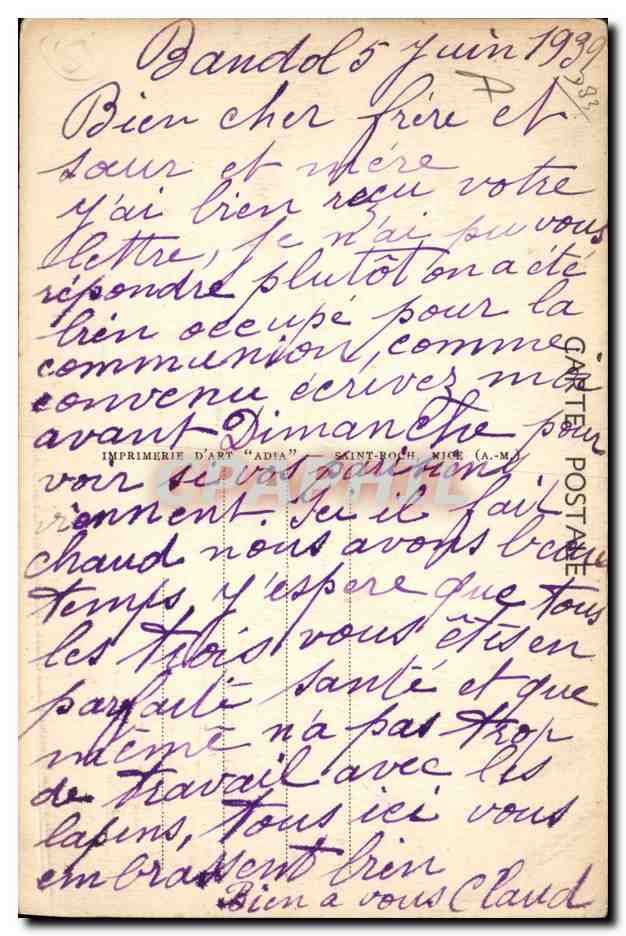 Bandol 5 Juin 1939
Bien cher frère et
sœur et mère
y'ai bien reçu votre
lettre, je n'ai pu vous
répondre plutôt on a été
bien occupé pour la
communion, comme
convenu écrivez moi
avant Dimanche pour
IMPRIMERIE D'ART "ADIA" - SAINT-ROCH, NICE (A.-M.)
voir si vos
viennent. Ici il fait
chaud nous avons beau
temps, y'espere que tous
les trois vous êtes en
parfaite santé et que
mémé n'a pas trop
de travail avec les
lapins, tous ici vous
embrassent bien
Bien a vous Claud
CARTE POSTALE
CPAPHIL